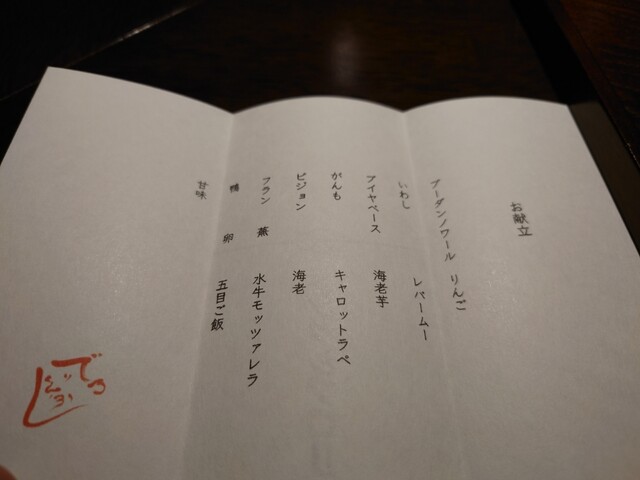 お献立
ブーダンノワール りんご
いわし レバームー
アイヤベース 海老芋
がんも キャロットラペ
ピジョン 海老
フラン 蕪 水牛モッツァレラ
鴨 卵 五目ご飯
甘味